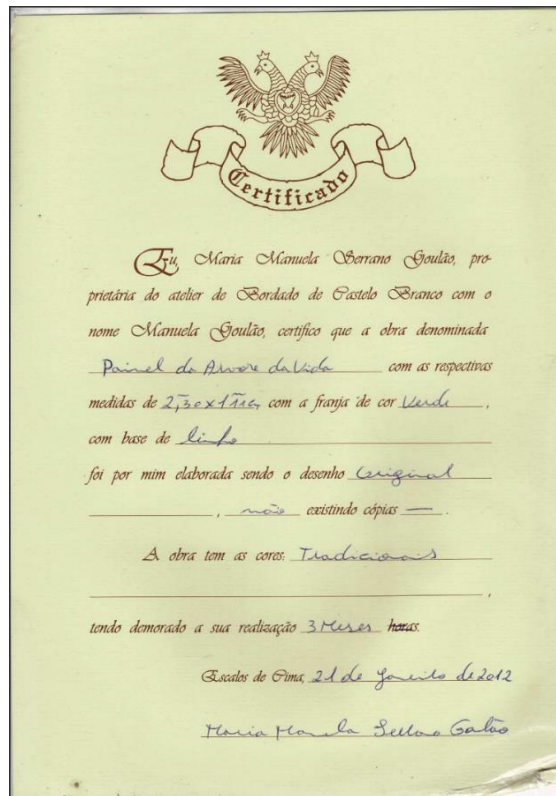 Certificado
Eu, Maria Manuela Serrano Goulão, pro-
prietária do atelier de Bordado de Castelo Branco com o
nome Manuela Goulão, certifico que a obra denominada
Painel da Arvore da Vida com as respectivas
medidas de com a franja de cor Verde,
com base de linho
foi por mim elaborada sendo o desenho Original
, não existindo cópias — .
A obra tem as cores: Tradicionais
,
tendo demorado a sua realização 3 Meses horas.
Escalos de Cima, 21 de de 2012
Maria